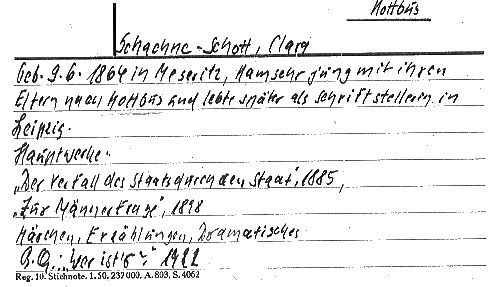 Kottbus
Schaehne-Schott, Clara
Geb. 9.6. 1864 in Meseritz, kam sehr jung mit ihren
Eltern nach Kottbus und lebte später als Schriftstellerin in
Leipzig.
Hauptwerke.
"Der Verfall des Staats durch den Staat", 1885,
"Zur Männerfrage", 1898
Märchen, Erzählungen, Dramatisches
"Wer ist's" 1922
Reg. 10. Stichnote. 1. 50. 237 000. A. 803, S. 4062